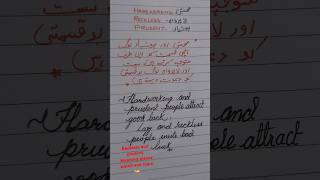 HARDWORKING محنتی
RECKLESS - لاپرواہ
PRUDENT ہوشیار
محنتی اور ہوشیار لوگ
اچھی قسمت کو اپنی طرف
متوجہ کرتے ہیں سست
اور لاپرواہ لوگ بدقسمتی
کو دعوت دیتے ہیں
~ Hardworking and
prudent people attract
good luck.
Lazy and reckless
people invite bad
luck.
Reckless and
prudent